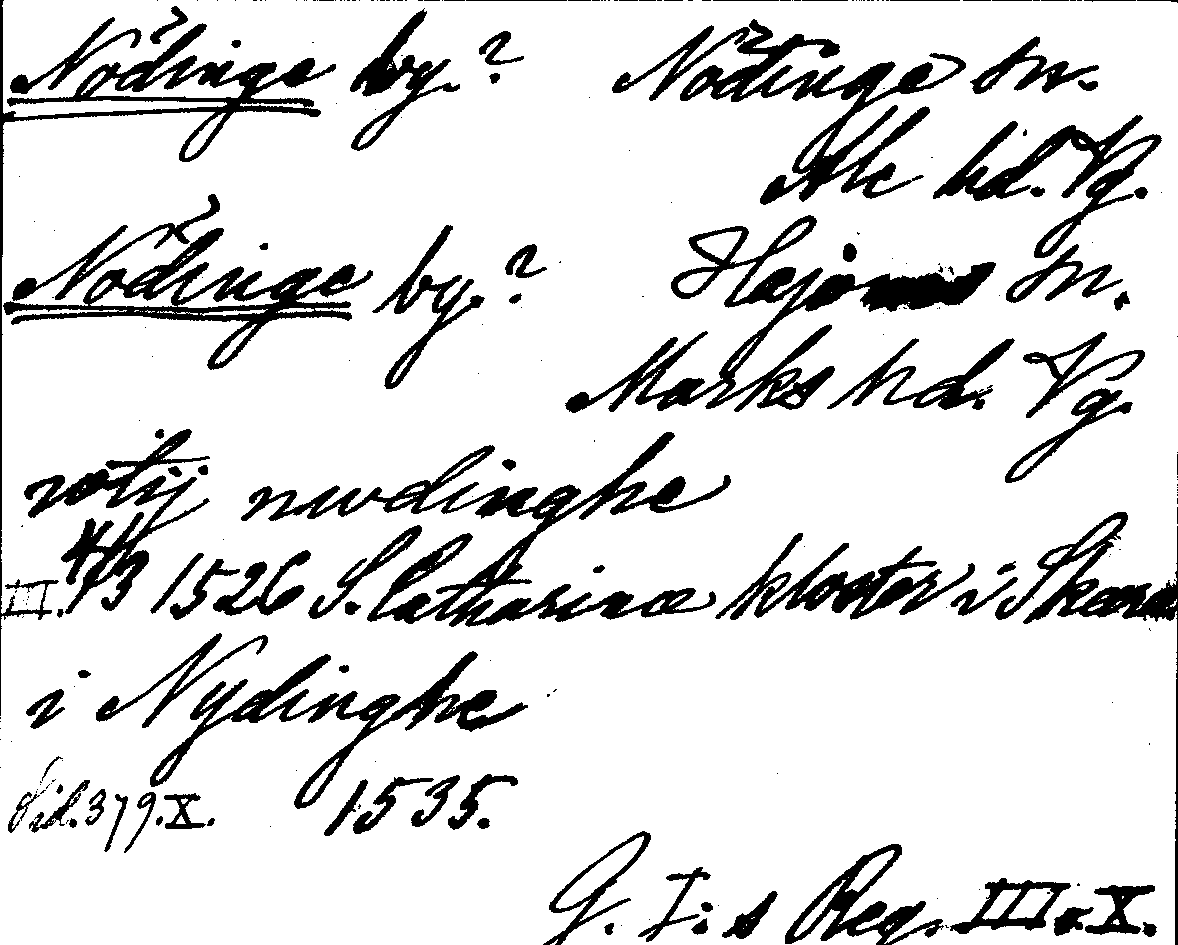 Nödinge by.? Nödinge sn.
Ale hd. Vg.
Nödinge by.? Hajoms sn.
Marks hd. Vg.
nwdinghe
III. 413 1526 S. Catharinæ kloster i Skara
i Nydinghe
Sid. 379. X. 1535.
G. I:s Reg. III o. X.